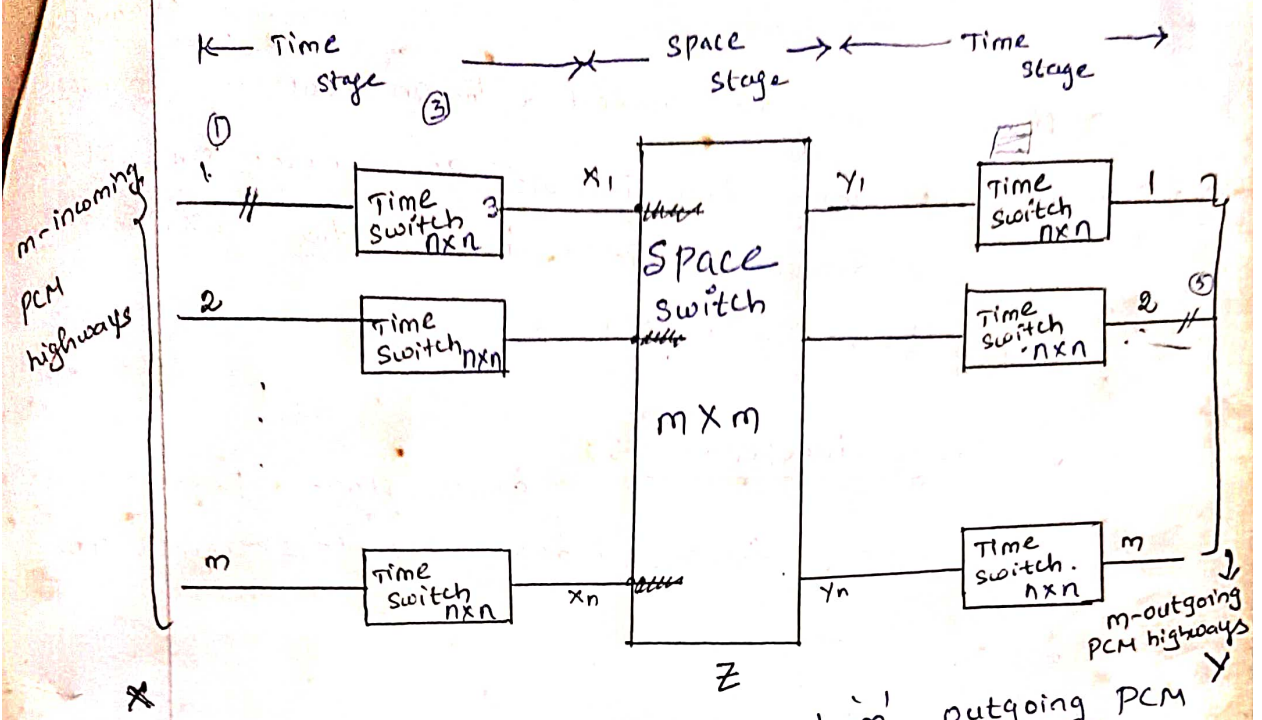 Time Stage
Space Stage
Time Stage
①
③
m-incoming
PCM
highways
1.
Time
Switch 3
n×n
X1
Y1
Time
Switch
n×n
1
Space
Switch
m×m
2
Time
Switch n×n
Time
Switch
n×n
2
⑤
m
Time
Switch
n×n
Xn
Yn
Time
Switch.
n×n
m
m-outgoing
PCM highways
X
Z
Y
'm' outgoing PCM